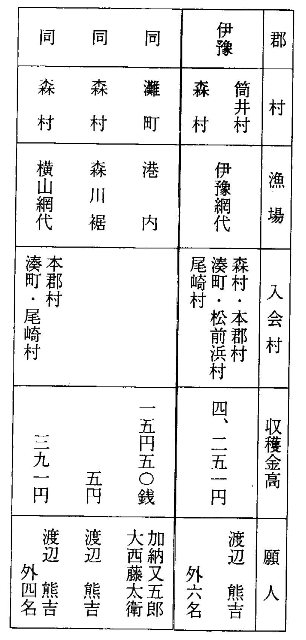 郡
村
漁場
入会村
収穫金高
願人
伊豫
筒井村
森村
伊豫網代
森村・本郡村
湊町・松前浜村
尾崎村
四、二五一円
渡辺熊吉
外六名
同
灘町
港内
一五円五〇銭
加納又五郎
大西藤太衛
同
森村
森川裾
五円
渡辺熊吉
同
森村
横山網代
本郡村
湊町・尾崎村
三九一円
渡辺熊吉
外四名